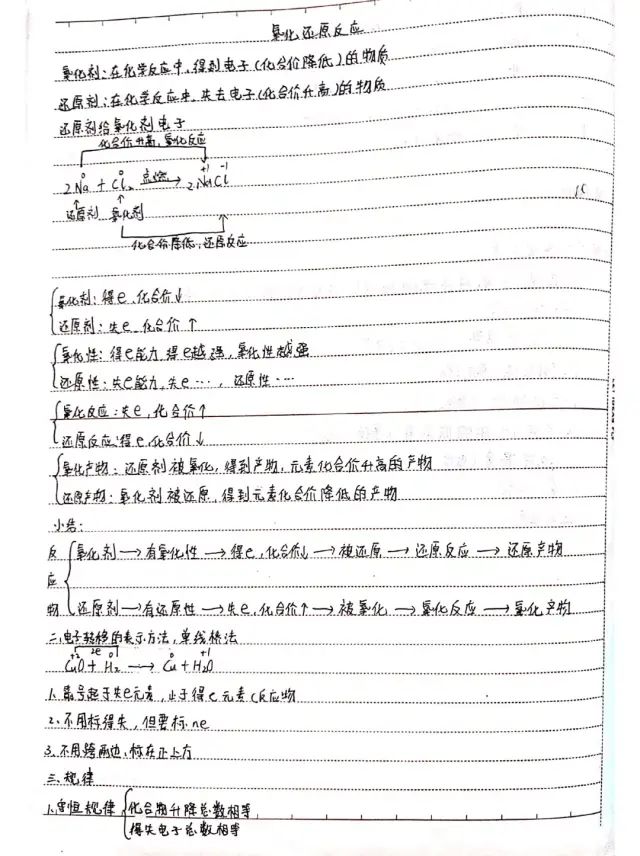 氧化还原反应
氧化剂:在化学反应中,得到电子(化合价降低)的物质
还原剂:在化学反应中,失去电子(化合价升高)的物质
还原剂给氧化剂电子
化合价升高,氧化反应
0 0 +1 -1
2Na + Cl₂ 点燃→ 2NaCl
↑还原剂 ↑氧化剂
化合价降低,还原反应
氧化剂:得e,化合价↓
还原剂:失e,化合价↑
氧化性:得e能力,得e越强,氧化性越强
还原性:失e能力,失e…,还原性…
氧化反应:失e,化合价↑
还原反应:得e,化合价↓
氧化产物:还原剂被氧化,得到产物,元素化合价升高的产物
还原产物:氧化剂被还原,得到元素化合价降低的产物
小结:
反应物
氧化剂→有氧化性→得e,化合价↓→被还原→还原反应→还原产物
还原剂→有还原性→失e,化合价↑→被氧化→氧化反应→氧化产物
二、电子转移的表示方法,单线桥法
+2 2e 0 0 +1
CuO + H₂ → Cu + H₂O
1、箭号起于失e元素,止于得e元素(反应物
2、不用标得失,但要标ne
3、不用跨两边,标在正上方
三、规律
1、守恒规律
化合物升降总数相等
得失电子总数相等